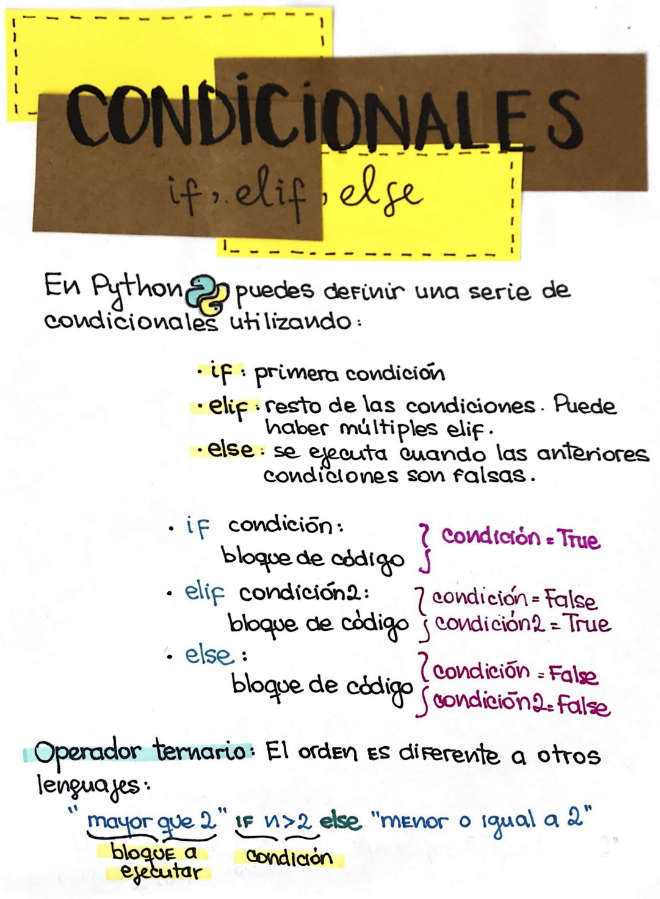 CONDICIONALES
if, elif, else
En Python puedes definir una serie de
condicionales utilizando:
· if: primera condición
· elif: resto de las condiciones. Puede
haber múltiples elif.
· else: se ejecuta cuando las anteriores
condiciones son falsas.
· if condición:
bloque de código } condición = True
· elif condición2: } condición = False
bloque de código } condición2 = True
· else: } condición = False
bloque de código } condición2 = False
Operador ternario: El orden es diferente a otros
lenguajes:
"mayor que 2" if n>2 else "menor o igual a 2"
bloque a condición
ejecutar